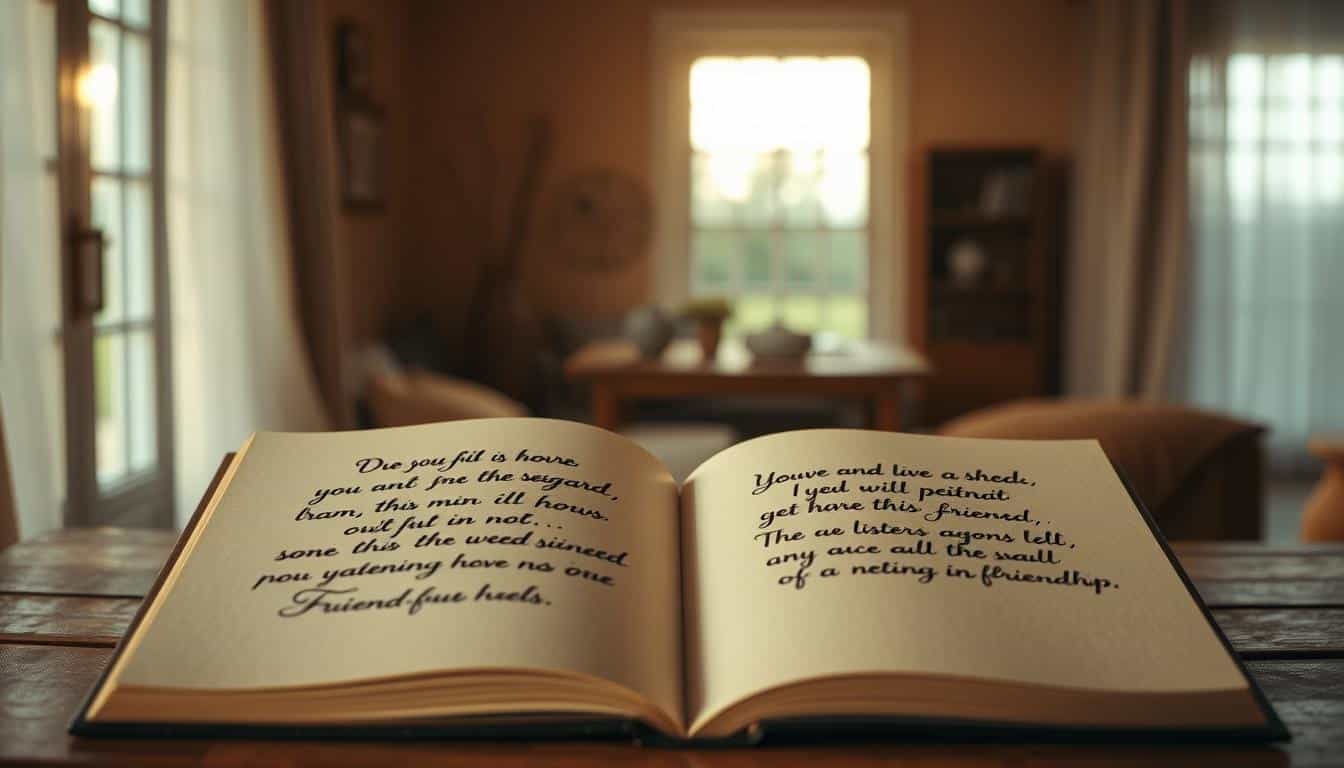 Due you ful is hove,
you ant fne the seisgard,
lram, this min ill hows.
out ful in not...
sone this the weed siineed
pou yatening hove nis one
Friend-fuu huels.
Youve and live a shedi,
I yed will peitnat
get have this friened,.
The ae listers agons lelt,
any auce aull the ssaull
of a neting in ffriendhip.